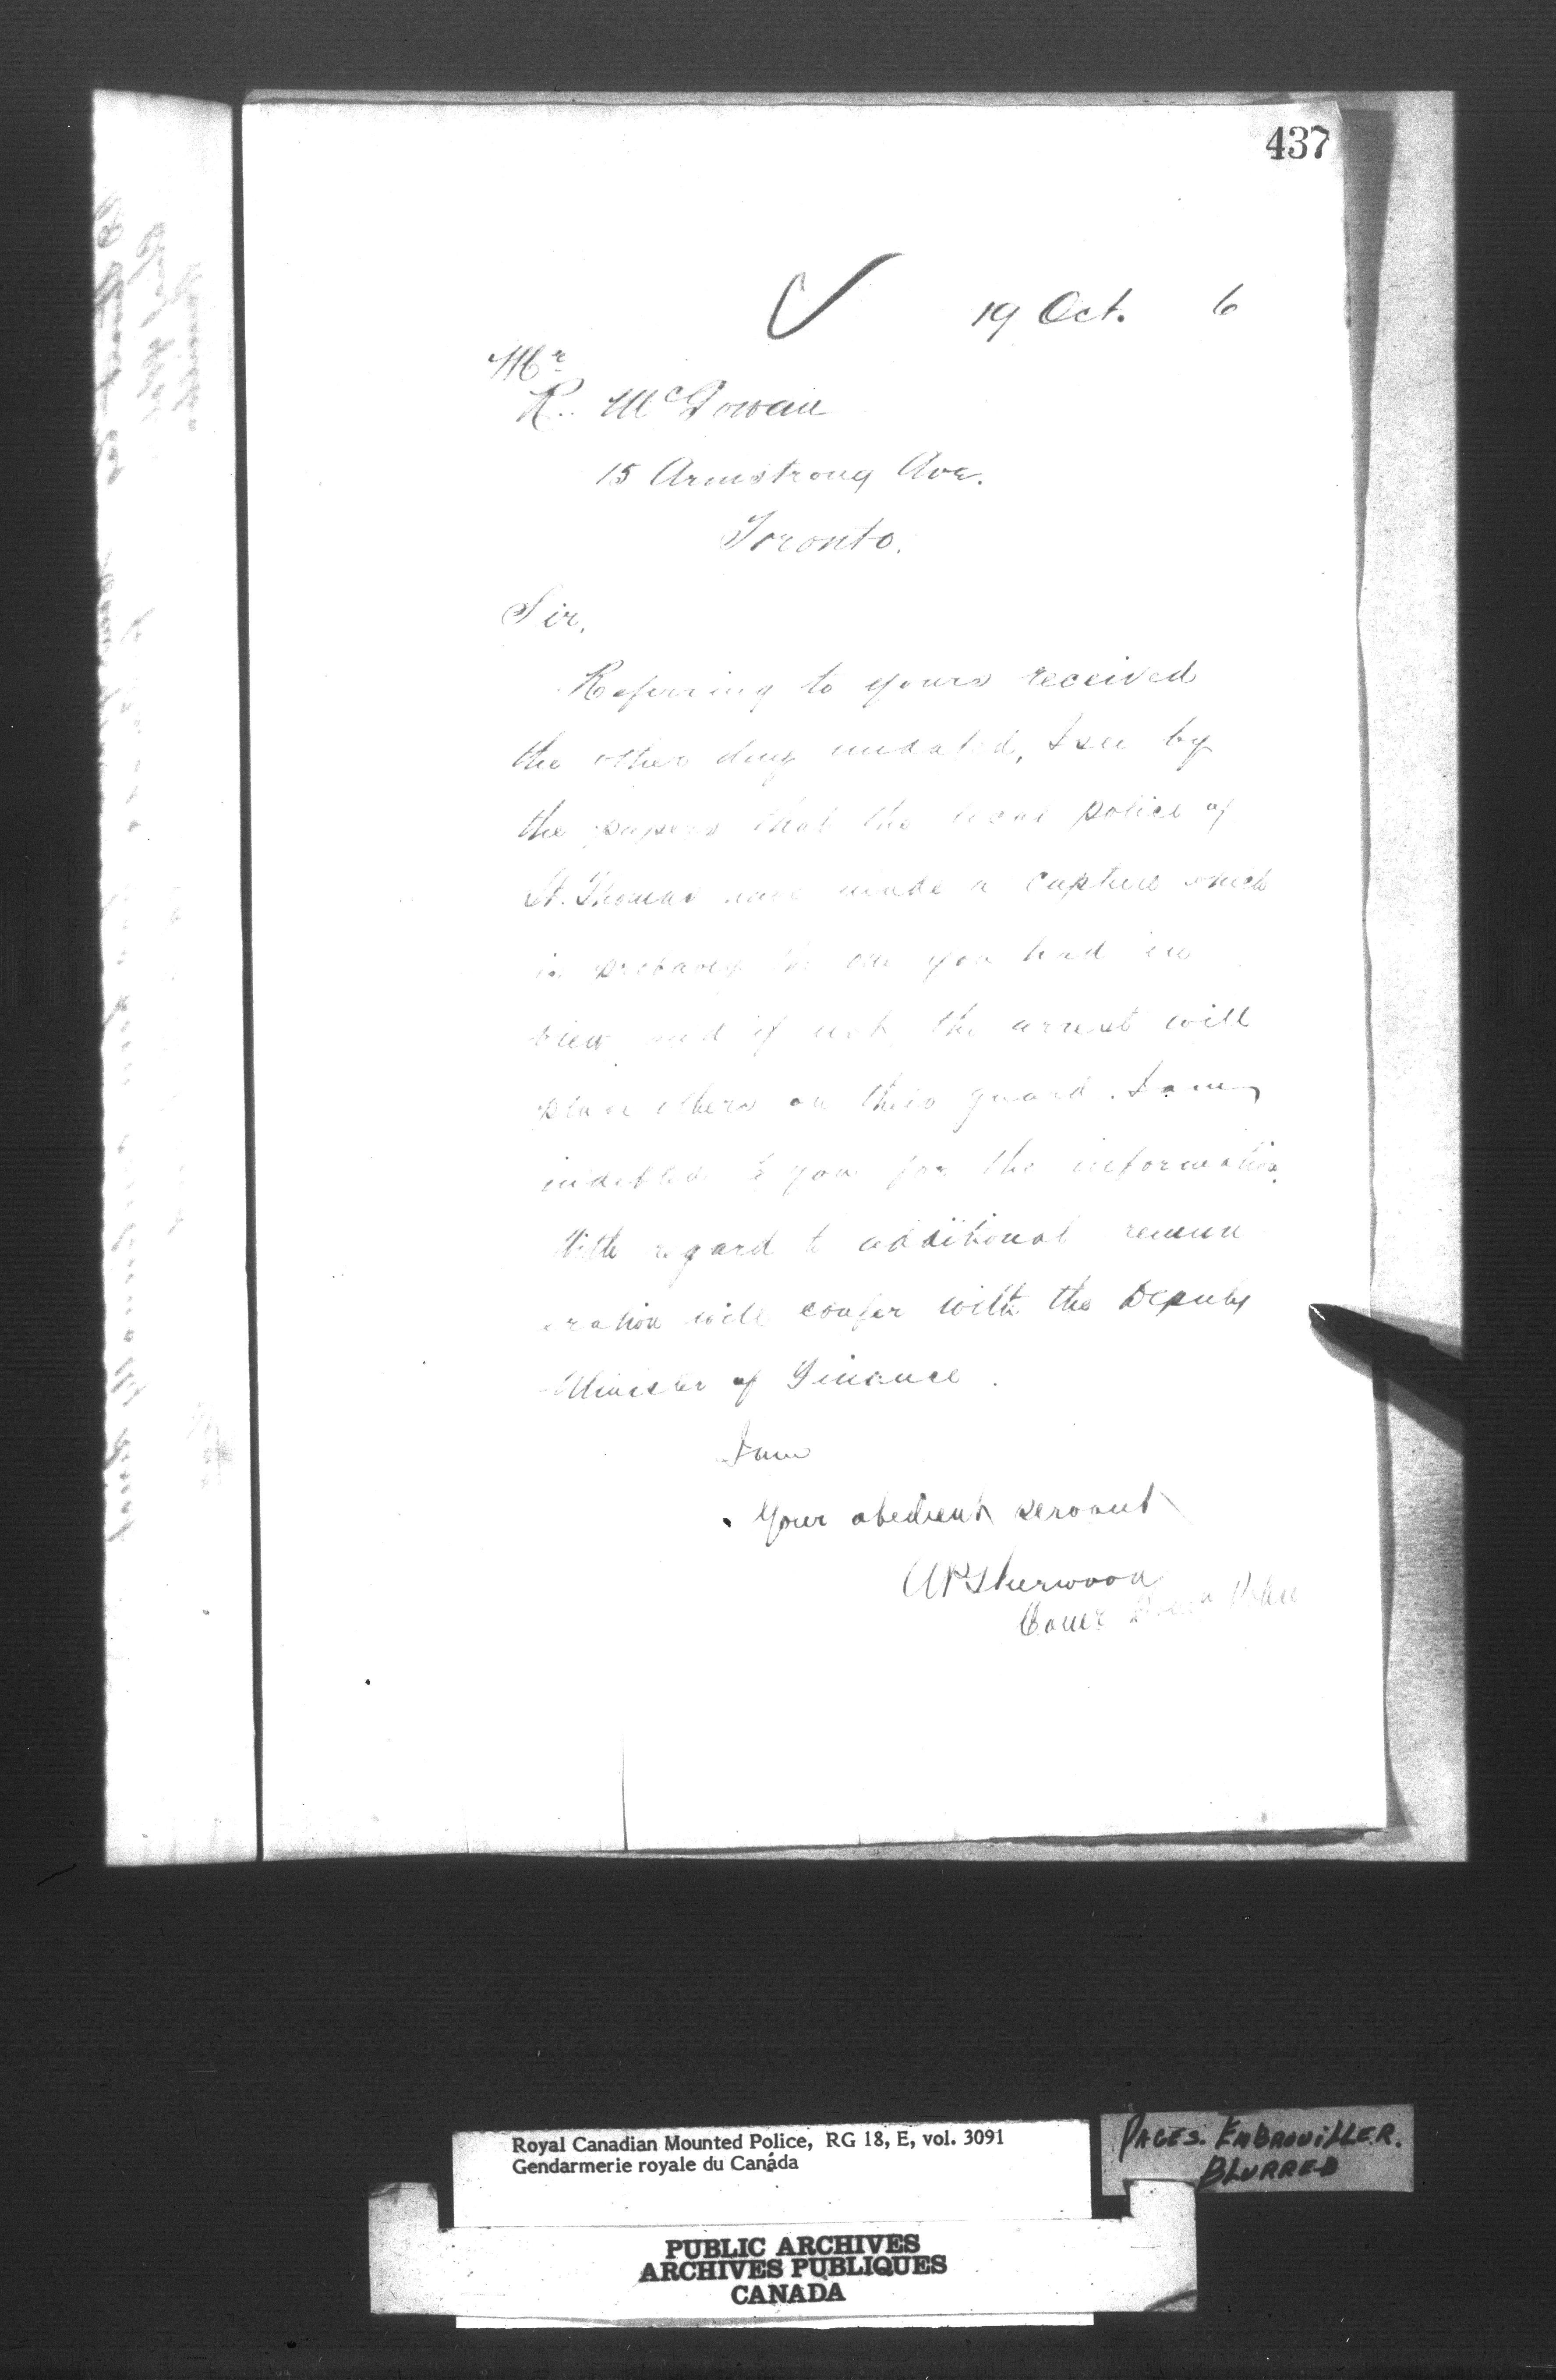 437
19 Oct. 6
Mr
R. McGowan
15 Armstrong Ave.
Toronto.
Sir,
Referring to yours received
the other day undated, I see by
the papers that the local police of
St. Thomas have made a capture which
is probably the one you had in
view and if not the arrest will
place others on their guard. I am
indebted to you for the information.
With regard to additional remun
eration will confer with the Deputy
Minister of Finance.
I am
Your obedient servant
AP Sherwood
Comr Domn Police
Royal Canadian Mounted Police, RG 18, E, vol. 3091
Gendarmerie royale du Canada
PAGES. EMBROUILLER.
BLURRED
PUBLIC ARCHIVES
ARCHIVES PUBLIQUES
CANADA